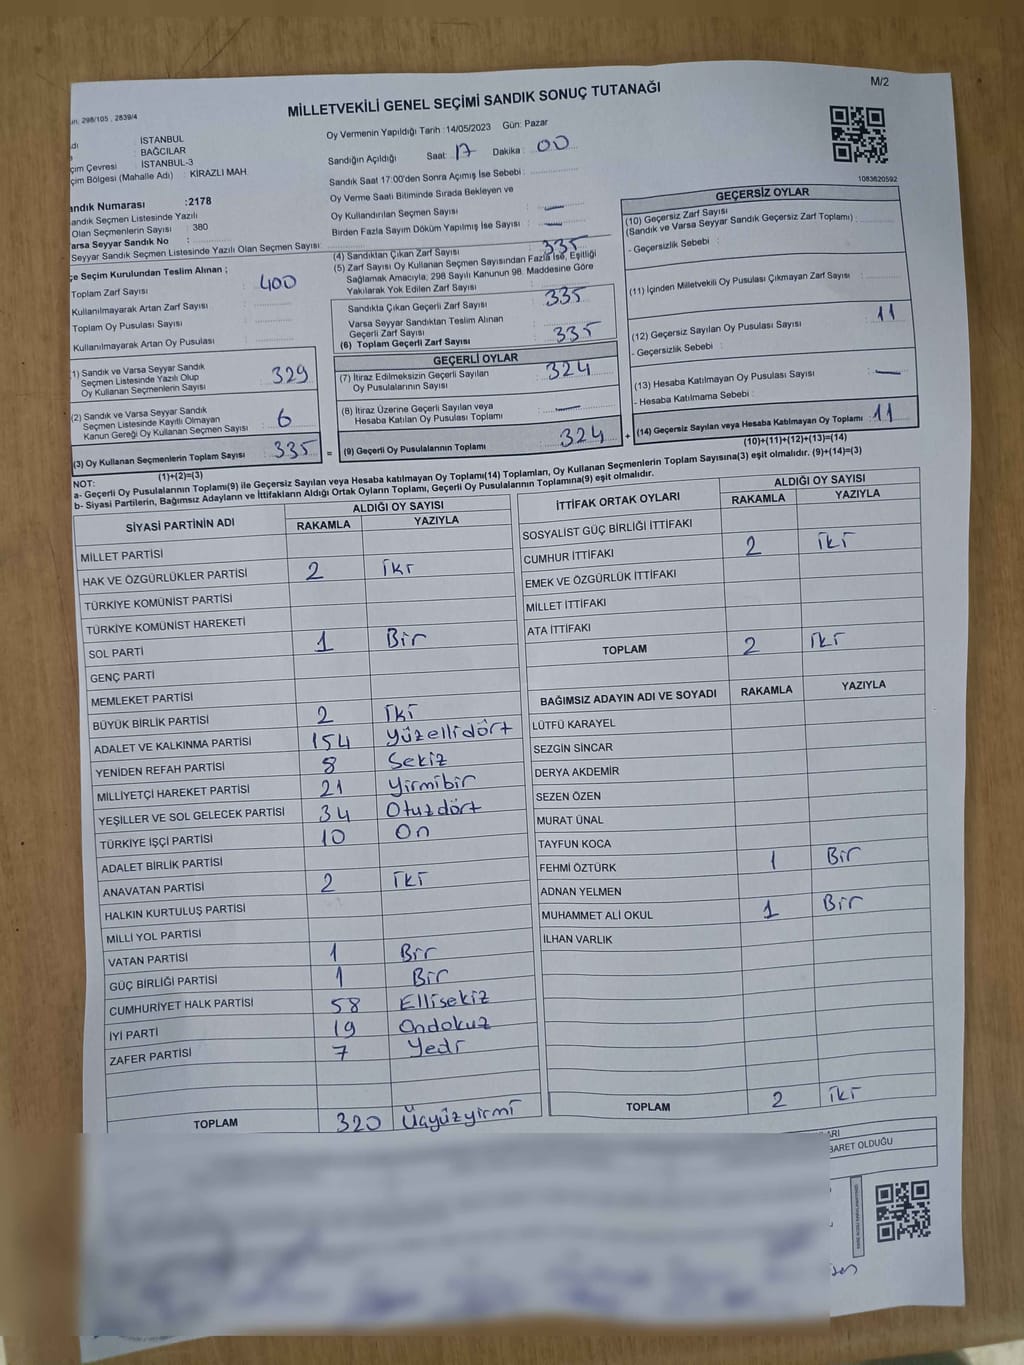 M/2
MİLLETVEKİLİ GENEL SEÇİMİ SANDIK SONUÇ TUTANAĞI
298/105 , 2839/4
İSTANBUL
BAĞCILAR
çim Çevresi : İSTANBUL-3
çim Bölgesi (Mahalle Adı) : KİRAZLI MAH.
Oy Vermenin Yapıldığı Tarih :14/05/2023 Gün: Pazar
Sandığın Açıldığı Saat: 17 Dakika: 00
Sandık Saat 17:00'den Sonra Açımış İse Sebebi :
Oy Verme Saati Bitiminde Sırada Bekleyen ve
Oy Kullandırılan Seçmen Sayısı : —
Birden Fazla Sayım Döküm Yapılmış İse Sayısı : —
1083620592
andık Numarası :2178
andık Seçmen Listesinde Yazılı
Olan Seçmenlerin Sayısı : 380
arsa Seyyar Sandık No :
Seyyar Sandık Seçmen Listesinde Yazılı Olan Seçmen Sayısı :
çe Seçim Kurulundan Teslim Alınan ;
Toplam Zarf Sayısı : 400
Kullanılmayarak Artan Zarf Sayısı :
Toplam Oy Pusulası Sayısı :
Kullanılmayarak Artan Oy Pusulası :
1) Sandık ve Varsa Seyyar Sandık
Seçmen Listesinde Yazılı Olup
Oy Kullanan Seçmenlerin Sayısı : 329
(2) Sandık ve Varsa Seyyar Sandık
Seçmen Listesinde Kayıtlı Olmayan
Kanun Gereği Oy Kullanan Seçmen Sayısı : 6
(3) Oy Kullanan Seçmenlerin Toplam Sayısı : 335
(1)+(2)=(3)
(4) Sandıktan Çıkan Zarf Sayısı : 335
(5) Zarf Sayısı Oy Kullanan Seçmen Sayısından Fazla İse, Eşitliği
Sağlamak Amacıyla, 298 Sayılı Kanunun 98. Maddesine Göre
Yakılarak Yok Edilen Zarf Sayısı :
Sandıkta Çıkan Geçerli Zarf Sayısı : 335
Varsa Seyyar Sandıktan Teslim Alınan
Geçerli Zarf Sayısı :
(6) Toplam Geçerli Zarf Sayısı : 335
GEÇERLİ OYLAR
(7) İtiraz Edilmeksizin Geçerli Sayılan
Oy Pusulalarının Sayısı : 324
(8) İtiraz Üzerine Geçerli Sayılan veya
Hesaba Katılan Oy Pusulası Toplamı : —
= (9) Geçerli Oy Pusulalarının Toplamı : 324
GEÇERSİZ OYLAR
(10) Geçersiz Zarf Sayısı
(Sandık ve Varsa Seyyar Sandık Geçersiz Zarf Toplamı) :
- Geçersizlik Sebebi :
(11) İçinden Milletvekili Oy Pusulası Çıkmayan Zarf Sayısı :
(12) Geçersiz Sayılan Oy Pusulası Sayısı : 11
- Geçersizlik Sebebi :
(13) Hesaba Katılmayan Oy Pusulası Sayısı : —
- Hesaba Katılmama Sebebi :
+ (14) Geçersiz Sayılan veya Hesaba Katılmayan Oy Toplamı : 11
(10)+(11)+(12)+(13)=(14)
NOT:
a- Geçerli Oy Pusulalarının Toplamı(9) ile Geçersiz Sayılan veya Hesaba katılmayan Oy Toplamı(14) Toplamları, Oy Kullanan Seçmenlerin Toplam Sayısına(3) eşit olmalıdır. (9)+(14)=(3)
b- Siyasi Partilerin, Bağımsız Adayların ve İttifakların Aldığı Ortak Oyların Toplamı, Geçerli Oy Pusulalarının Toplamına(9) eşit olmalıdır.
SİYASİ PARTİNİN ADI ALDIĞI OY SAYISI
RAKAMLA YAZIYLA
MİLLET PARTİSİ
HAK VE ÖZGÜRLÜKLER PARTİSİ 2 İki
TÜRKİYE KOMÜNİST PARTİSİ
TÜRKİYE KOMÜNİST HAREKETİ
SOL PARTİ 1 Bir
GENÇ PARTİ
MEMLEKET PARTİSİ
BÜYÜK BİRLİK PARTİSİ 2 İki
ADALET VE KALKINMA PARTİSİ 154 Yüzellidört
YENİDEN REFAH PARTİSİ 8 Sekiz
MİLLİYETÇİ HAREKET PARTİSİ 21 Yirmibir
YEŞİLLER VE SOL GELECEK PARTİSİ 34 Otuzdört
TÜRKİYE İŞÇİ PARTİSİ 10 On
ADALET BİRLİK PARTİSİ
ANAVATAN PARTİSİ 2 İki
HALKIN KURTULUŞ PARTİSİ
MİLLİ YOL PARTİSİ
VATAN PARTİSİ 1 Bir
GÜÇ BİRLİĞİ PARTİSİ 1 Bir
CUMHURİYET HALK PARTİSİ 58 Ellisekiz
İYİ PARTİ 19 Ondokuz
ZAFER PARTİSİ 7 Yedi
TOPLAM 320 Üçyüzyirmi
İTTİFAK ORTAK OYLARI ALDIĞI OY SAYISI
RAKAMLA YAZIYLA
SOSYALİST GÜÇ BİRLİĞİ İTTİFAKI
CUMHUR İTTİFAKI 2 İki
EMEK VE ÖZGÜRLÜK İTTİFAKI
MİLLET İTTİFAKI
ATA İTTİFAKI
TOPLAM 2 İki
BAĞIMSIZ ADAYIN ADI VE SOYADI RAKAMLA YAZIYLA
LÜTFÜ KARAYEL
SEZGİN SİNCAR
DERYA AKDEMİR
SEZEN ÖZEN
MURAT ÜNAL
TAYFUN KOCA
FEHMİ ÖZTÜRK 1 Bir
ADNAN YELMEN
MUHAMMET ALİ OKUL 1 Bir
İLHAN VARLIK
TOPLAM 2 İki
ARI
BARET OLDUĞU